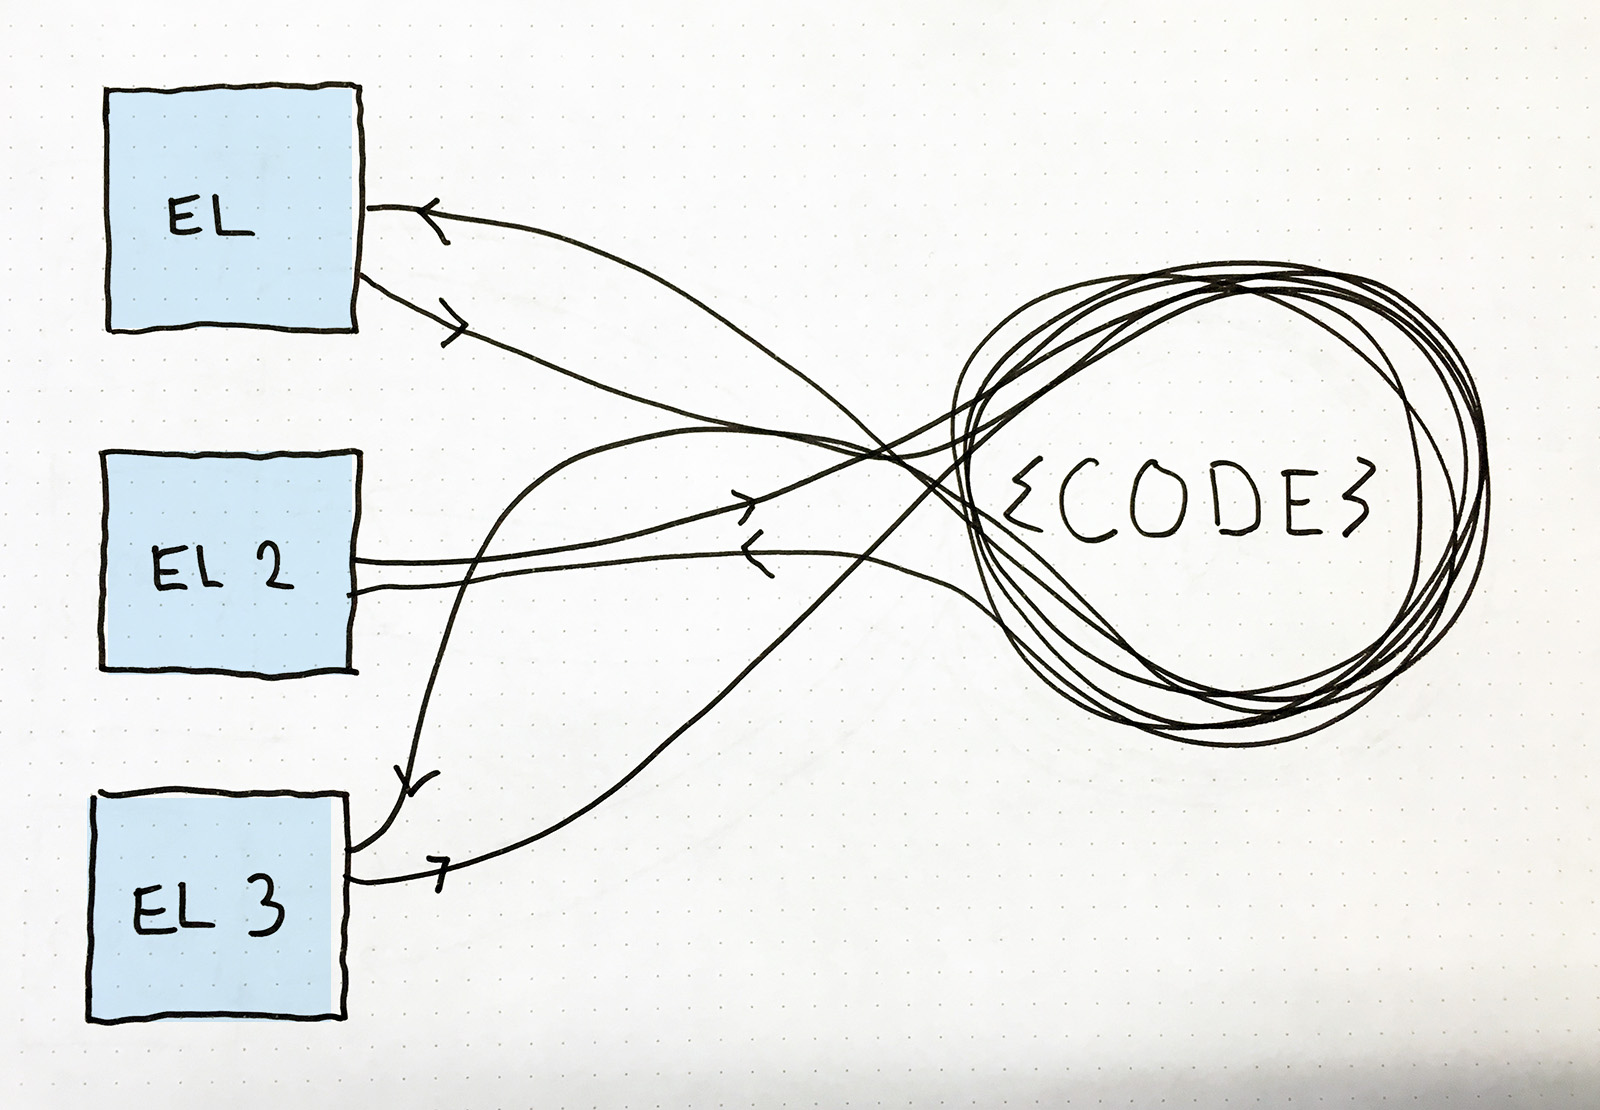 EL
EL 2
EL 3
{CODE}